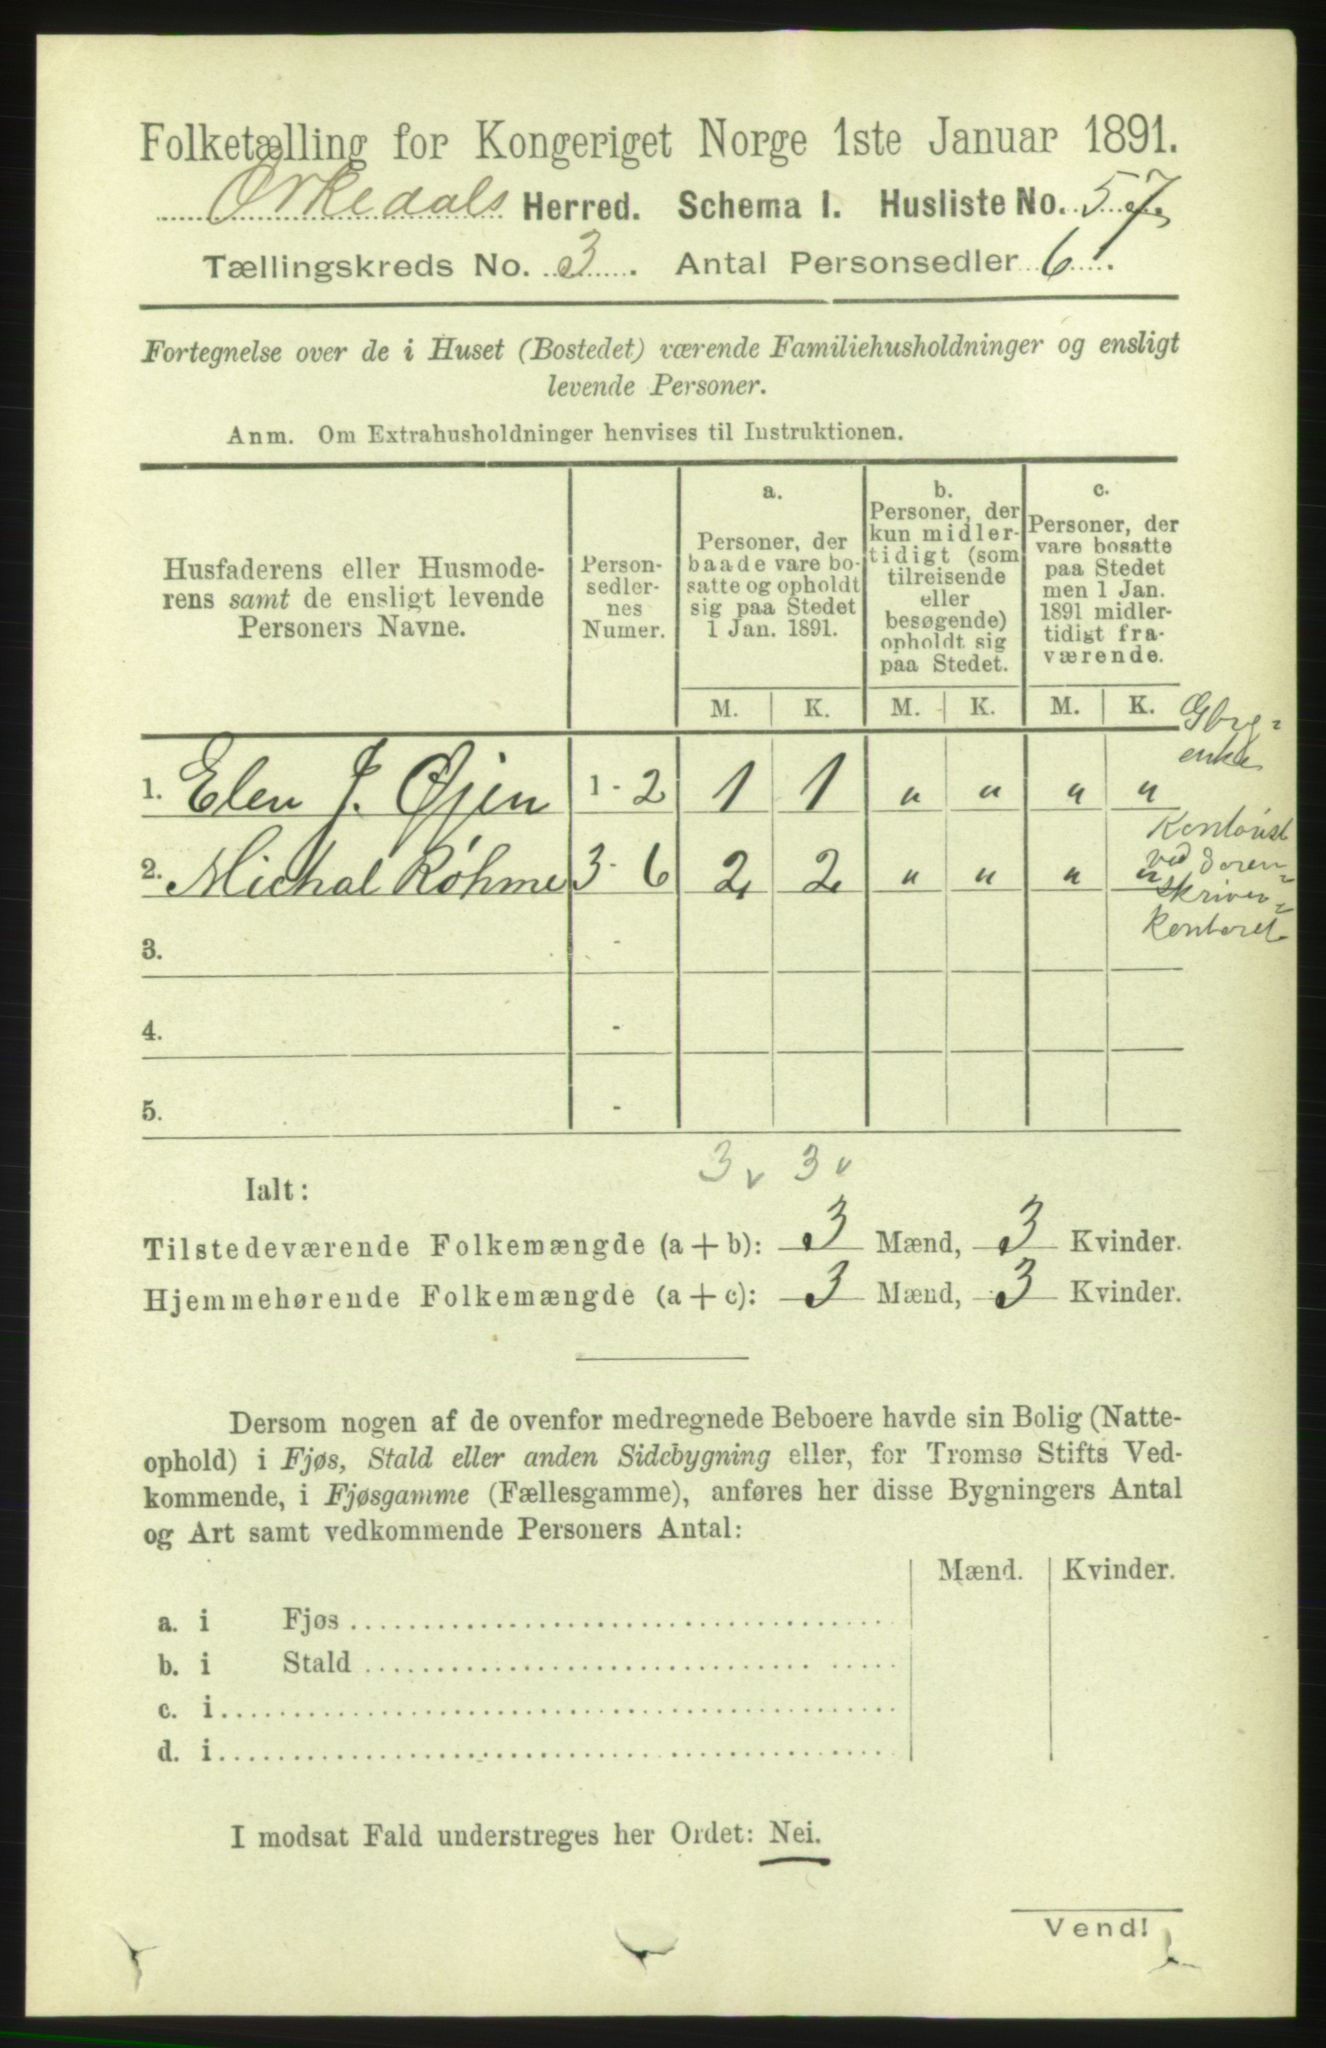 Folketælling for Kongeriget Norge 1ste Januar 1891.
Ørkedals Herred. Schema I. Husliste No. 57
Tællingskreds No. 3. Antal Personsedler 6.
Fortegnelse over de i Huset (Bostedet) værende Familiehusholdninger og ensligt
levende Personer.
Anm. Om Extrahusholdninger henvises til Instruktionen.
Husfaderens eller Husmode-
rens samt de ensligt levende
Personers Navne.
Person-
sedler-
nes
Numer.
a.
Personer, der
baade vare bo-
satte og opholdt
sig paa Stedet
1 Jan. 1891.
b.
Personer, der
kun midler-
tidigt (som
tilreisende
eller
besøgende)
opholdt sig
paa Stedet.
c.
Personer, der
vare bosatte
paa Stedet
men 1 Jan.
1891 midler-
tidigt fra-
værende.
M. K. M. K. M. K.
enke
1. Elen J. Øjen 1 - 2 1 1 „ „ „ „
2. Michal Røhme 3 - 6 2 2 „ „ „ „
ved Soren-
skriver-
kontoret
3. -
4. -
5. -
3 v 3 v
Ialt:
Tilstedeværende Folkemængde (a + b): 3 Mænd, 3 Kvinder.
Hjemmehørende Folkemængde (a + c): 3 Mænd, 3 Kvinder.
Dersom nogen af de ovenfor medregnede Beboere havde sin Bolig (Natte-
ophold) i Fjøs, Stald eller anden Sidebygning eller, for Tromsø Stifts Ved-
kommende, i Fjøsgamme (Fællesgamme), anføres her disse Bygningers Antal
og Art samt vedkommende Personers Antal:
Mænd. Kvinder.
a. i Fjøs
b. i Stald
c. i
d. i
I modsat Fald understreges her Ordet: Nei.
Vend!